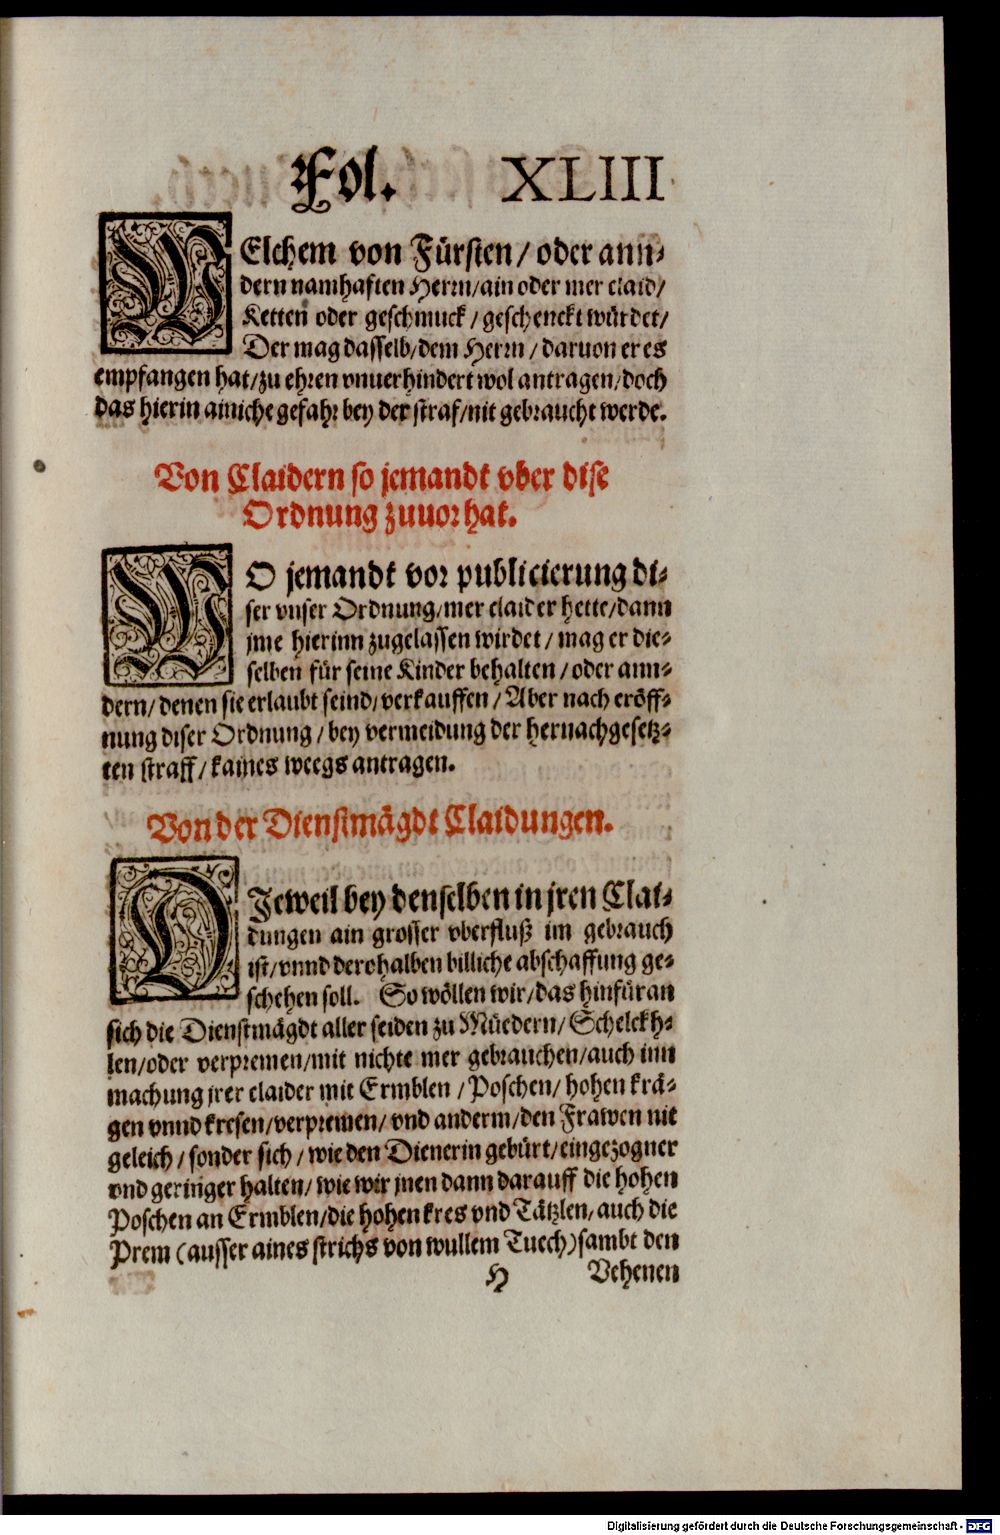 Fol. XLIII
WElchem von Fürsten/ oder ann-
dern namhaften Herrn/ain oder mer claid/
Ketten oder geschmuck/geschenckt würdet/
Der mag dasselb/dem Herrn/daruon er es
empfangen hat/zu ehren vnuerhindert wol antragen/doch
das hierin ainiche gefahr bey der straf/nit gebraucht werde.
Von Claidern so jemandt vber dise
Ordnung zuuor hat.
WO jemandt vor publicierung di-
ser vnser Ordnung/mer claider hette/dann
jme hierinn zugelassen wirdet/mag er die-
selben für seine Kinder behalten/oder ann-
dern/denen sie erlaubt seind/verkauffen/Aber nach eröff-
nung diser Ordnung/bey vermeidung der hernachgesetz-
ten straff/kaines weegs antragen.
Von der Dienstmägdt Claidungen.
DJeweil bey denselben in jren Clai-
dungen ain grosser vberfluß im gebrauch
ist/vnnd derohalben billiche abschaffung ge-
schehen soll. So wöllen wir/das hinfüran
sich die Dienstmägdt aller seiden zu Müedern/Schelckh-
len/oder verpremen/mit nichte mer gebrauchen/auch inn
machung jrer claider mit Ermblen/Poschen/hohen krä-
gen vnnd kresen/verpremen/vnd anderm/den Frawen nit
geleich/sonder sich/wie den Dienerin gebürt/eingezogner
vnd geringer halten/wie wir jnen dann darauff die hohen
Poschen an Ermblen/die hohen kres vnd Tätzlen/auch die
Prem (ausser aines strichs von wullem Tuech) sambt den
H Vehenen
Digitalisierung gefördert durch die Deutsche Forschungsgemeinschaft - DFG